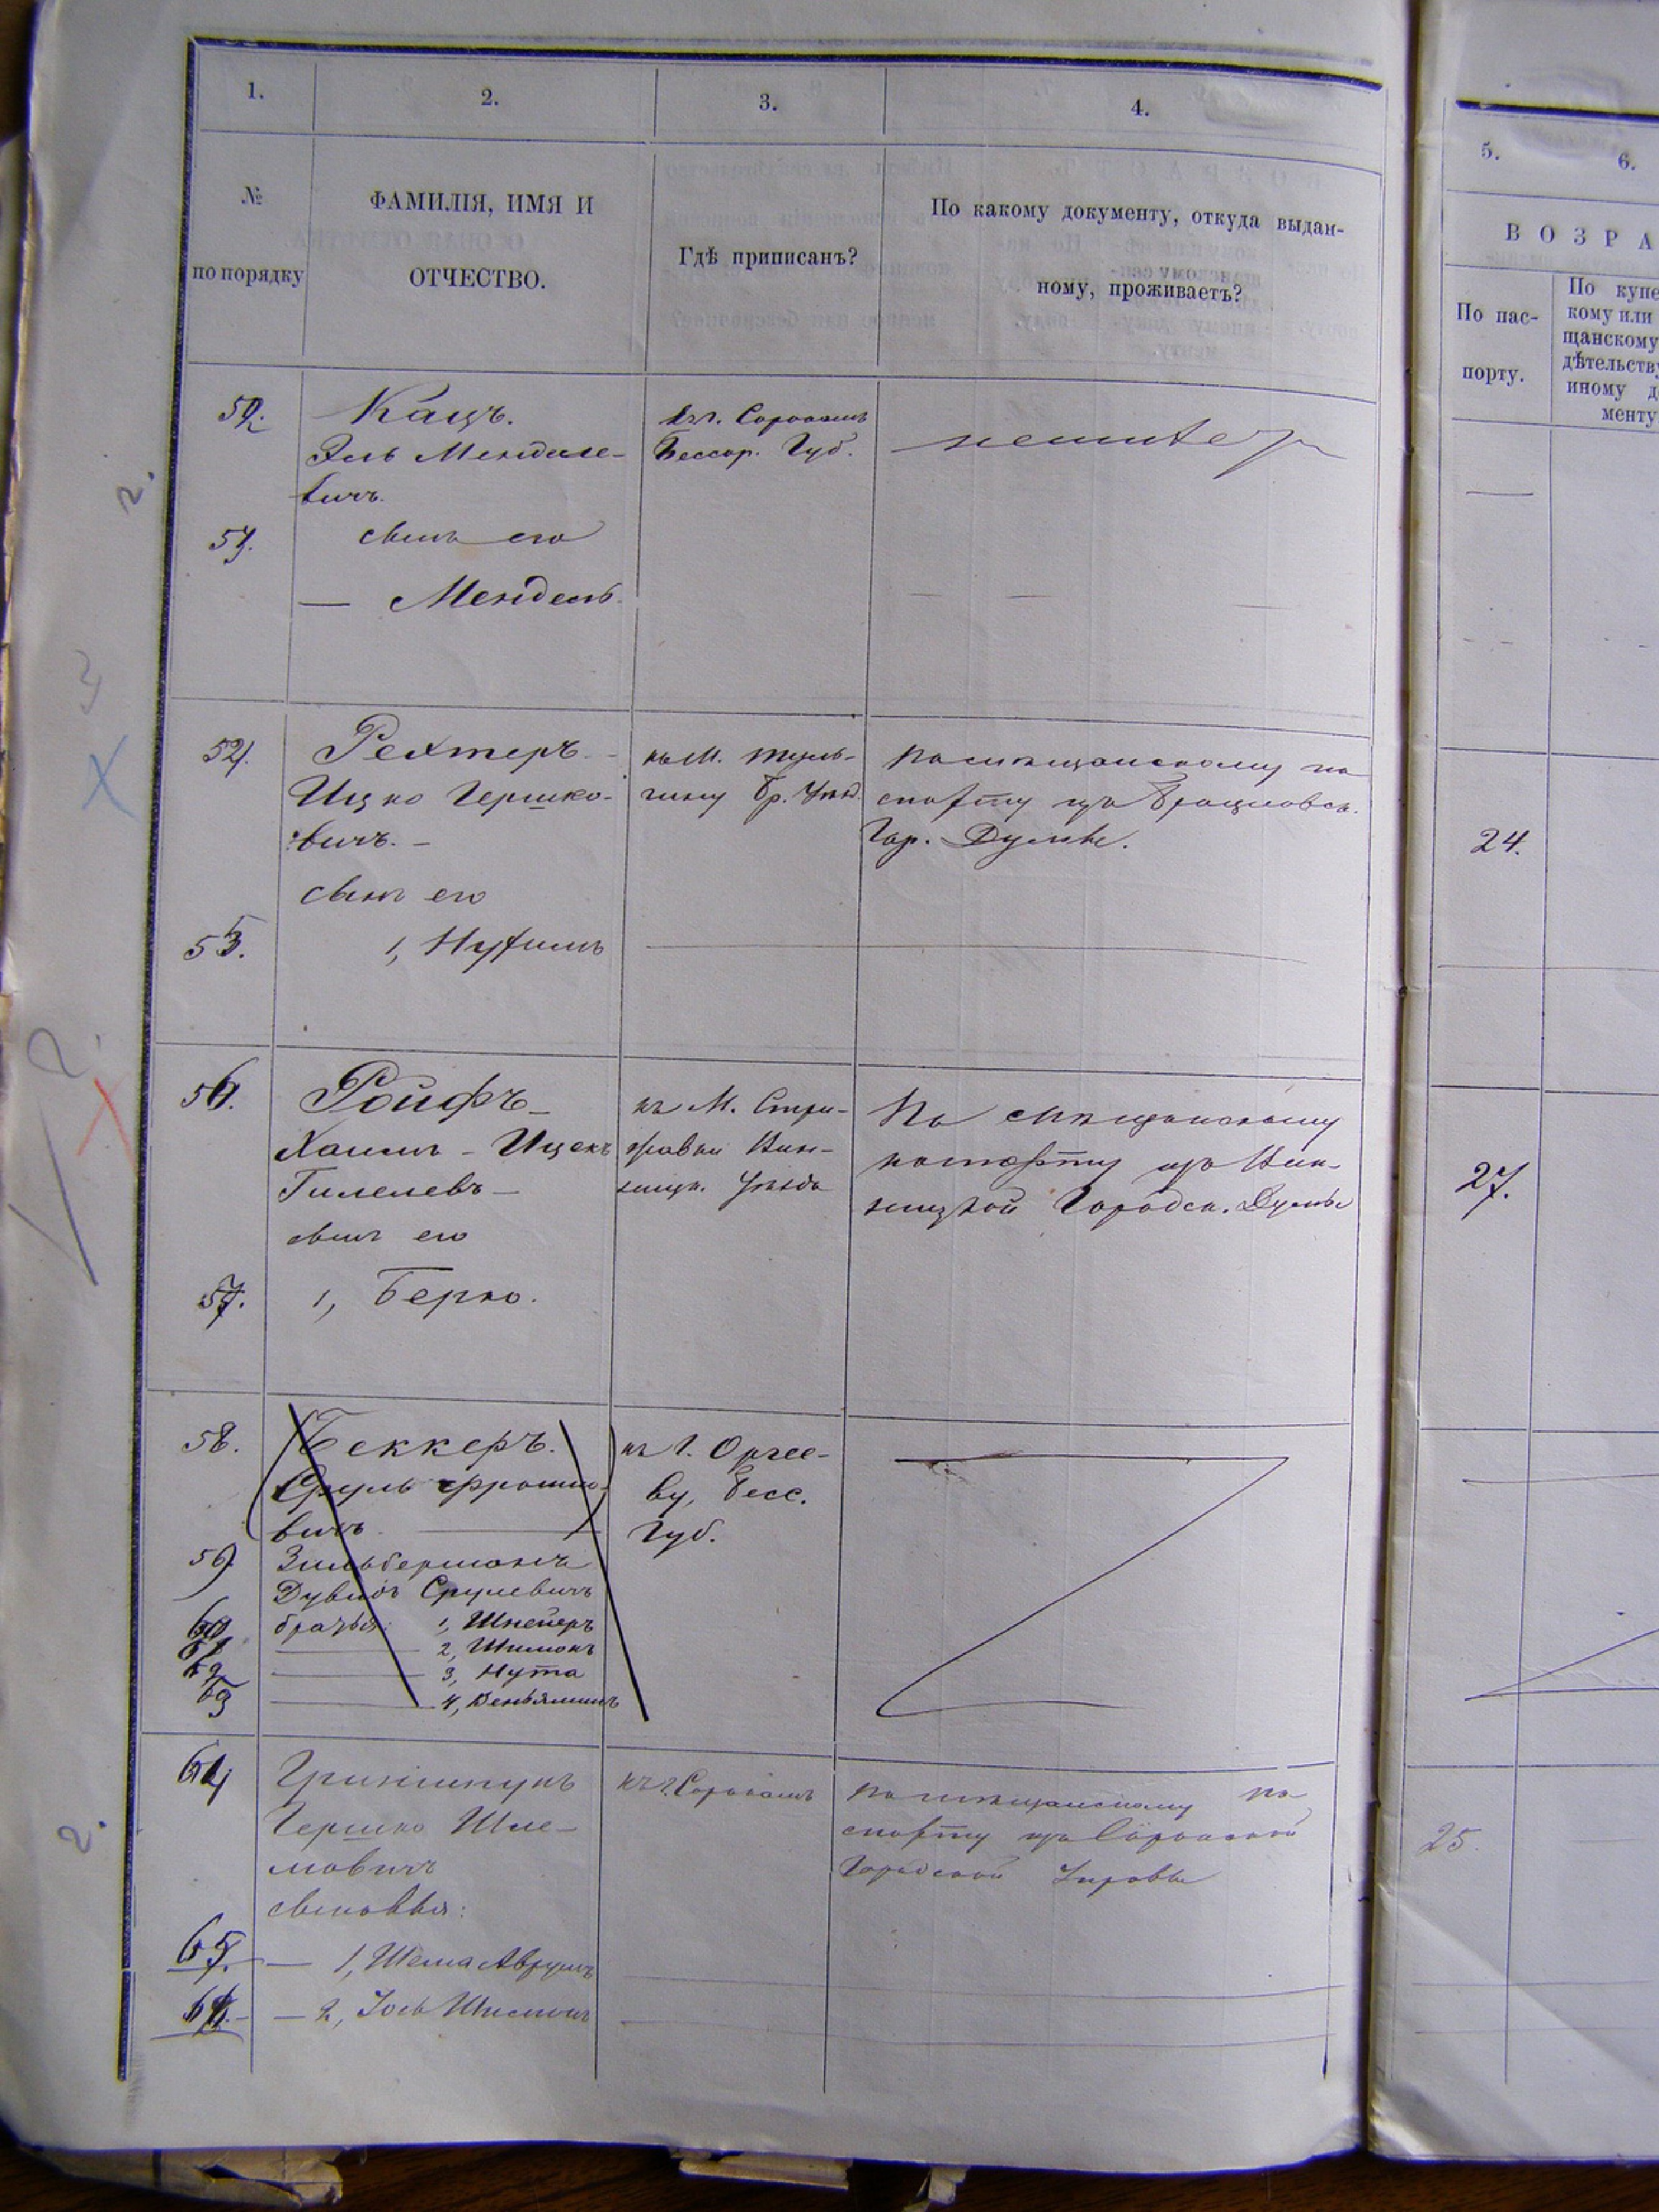 1.
2.
3.
4.
5.
6.
№
по порядку
ФАМИЛІЯ, ИМЯ И
ОТЧЕСТВО.
Гдѣ приписанъ?
По какому документу, откуда выдан-
ному, проживаетъ?
ВОЗРА
По пас-
порту.
По купе
кому или
щанскому
дѣтельству
иному д
менту
Кацъ.
Менделе-
вичъ.
Бессар. Губ.
сынъ его
— Мендель
Рехтеръ
Ицко Гершко-
вичъ. —
къ М. Туль-
чину Бр. Уѣзд.
По мѣщанскому па
спорту изъ Брацлавск.
Гор. Думы.
24.
сынъ его
55.
1, Нухимъ
56.
Ройфъ —
Хаимъ - Ицекъ
Гилелевъ —
къ М. Стри-
жавки Вин-
ницк. Уѣзда
По мѣщанскому
паспорту изъ Вин-
ницкой Городск. Думы
27.
сынъ его
57.
1, Берко.
58.
Беккеръ.
Сруль
вичъ
къ Г. Оргее-
ву, Бесс.
Губ.
59
Зильберманъ
Дувидъ Срулевичъ
60
братья: 1, Шнеер
61
2, Шимонъ
62
3, Нута
63
4, Веньяминъ
64
Гершко Шле-
мовичъ
къ г. Сорокамъ
По мѣщанскому па
спорту изъ Сорокской
Городской Управы
25.
сыновья:
65.
— 1, Аврумъ
— 2,
2.
2.